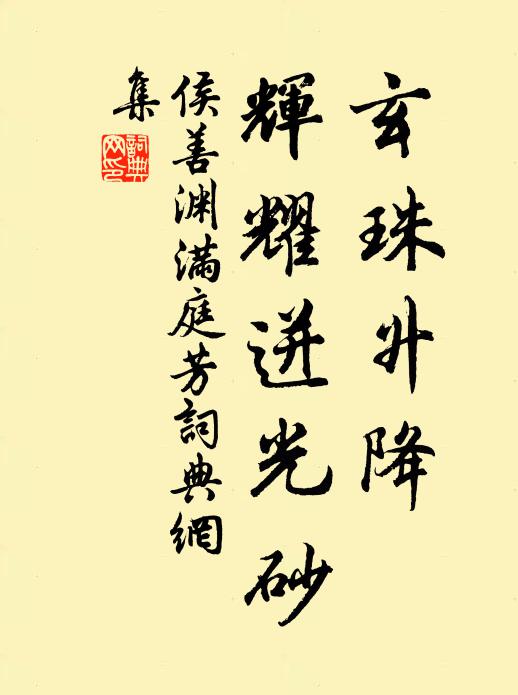 玄珠升降
輝耀迸光砂
侯善渊滿庭芳詞典網
集
詞典
网印